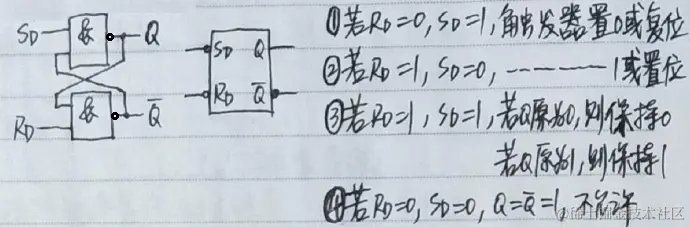 S_D & Q
R_D & Q̅
S_D Q
R_D Q̅
①若R_D=0, S_D=1, 触发器置0或复位
②若R_D=1, S_D=0, ------- 1或置位
③若R_D=1, S_D=1, 若Q原为0, 则保持0
若Q原为1, 则保持1
④若R_D=0, S_D=0, Q=Q̅=1, 不允许
@稀土掘金技术社区